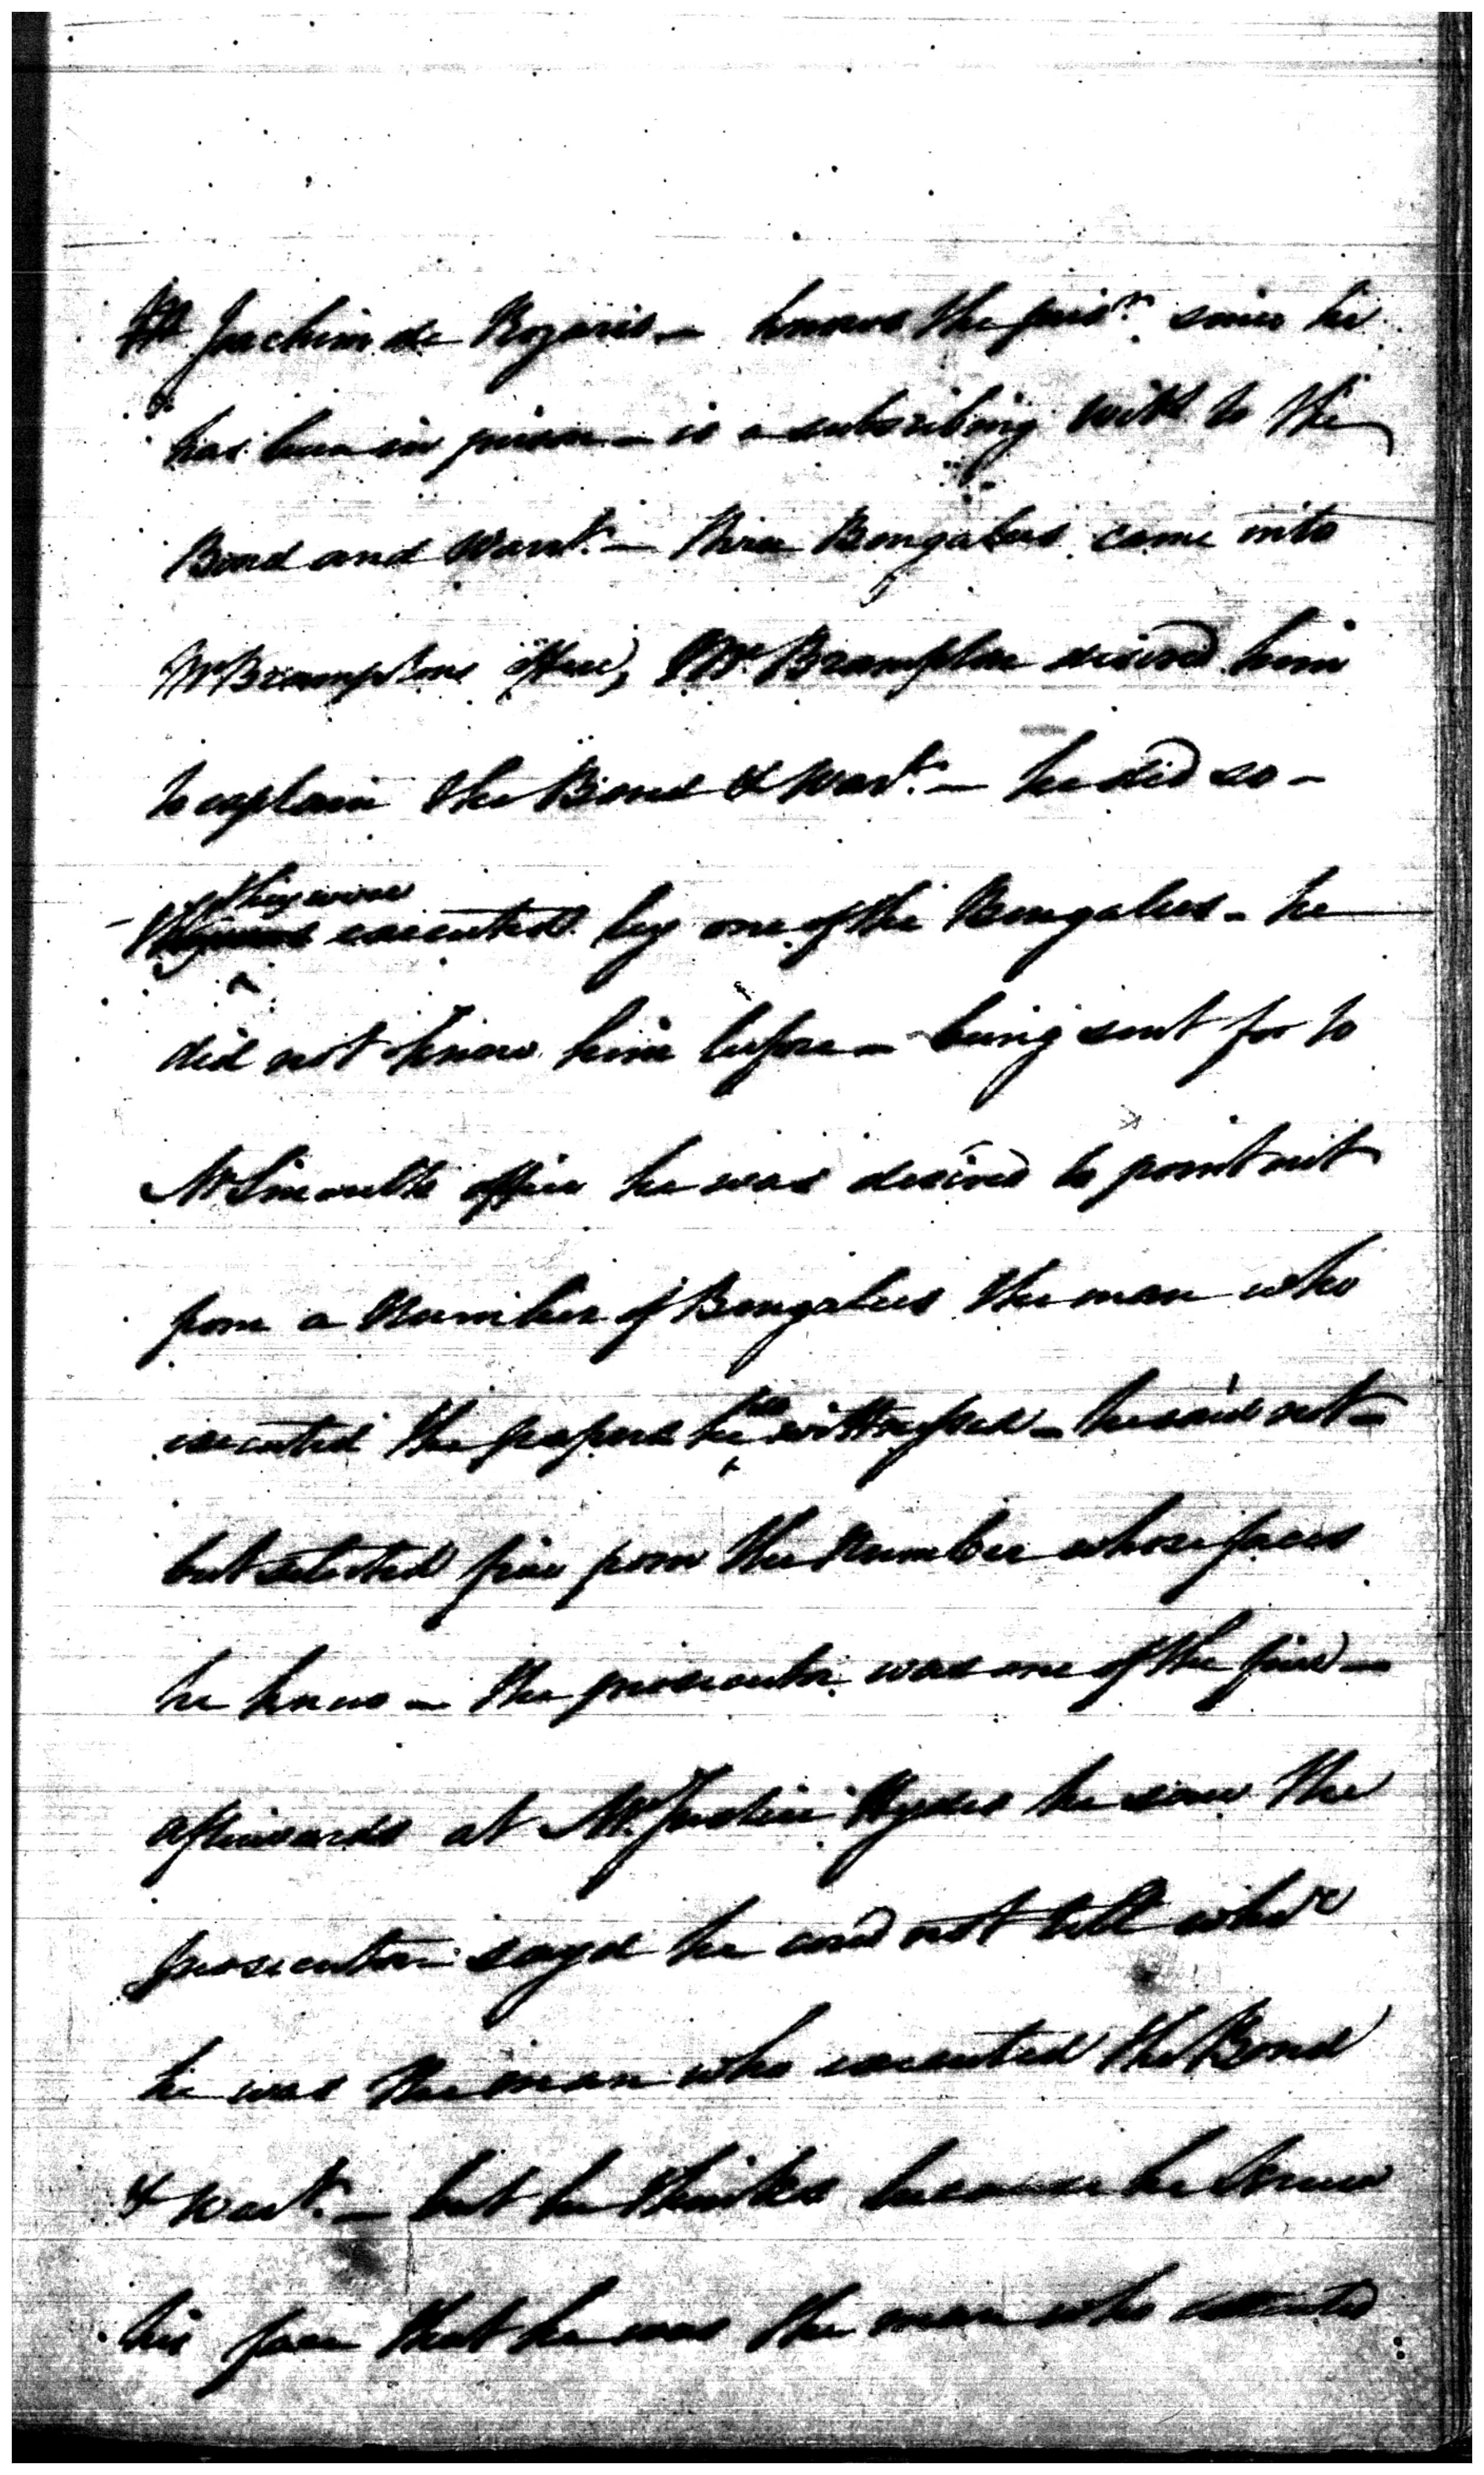 Joachim de Rozario — knows the pris.r since he
has been in prison — is a subscribing witss to the
Bond and Warrt. — three Bengalees came into
Mr Bramptons office, Mr. Brampton desired him
to explain the Bond & Warrt. — he did so —
- they were executed by one of the Bengalees — he
did not know him before — being sent for to
Mr office he was desired to point out
from a Number of Bengalees the man who
executed the papers he had wittnessed — he said not —
but selected five from the Number whose faces
he knew — the prosecutor was one of the five —
afterwards at Mr. Justice Hydes he saw the
prosecutor says he coud not tell whr
he was the man who executed the Bond
& Warrt. — but he thinks because he knew
his face that he was the man who executed